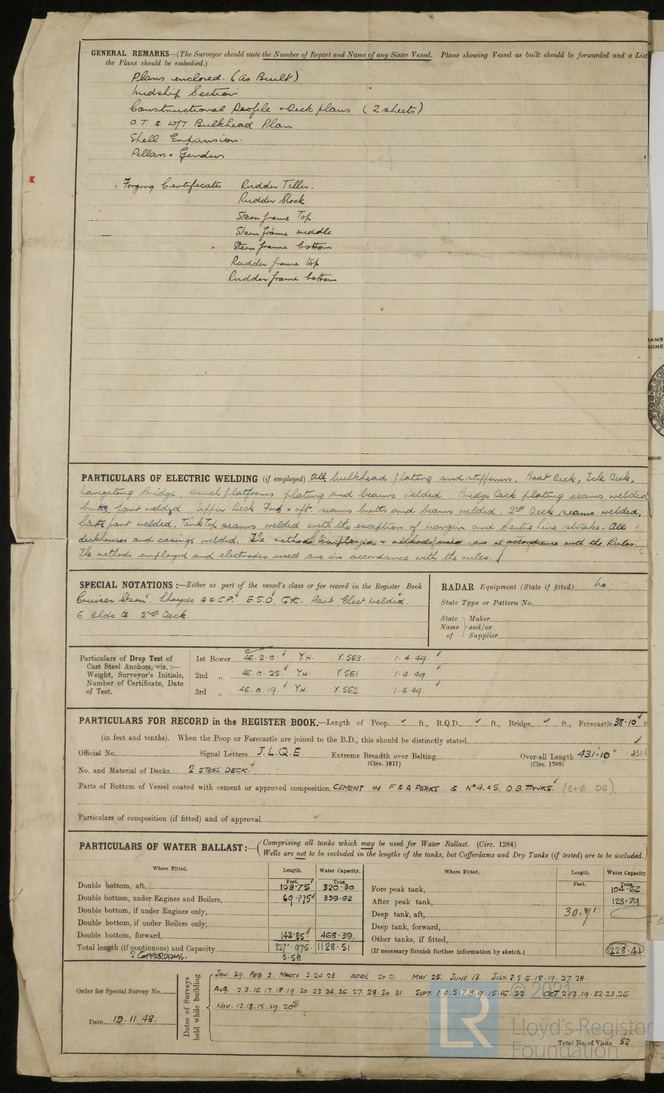 GENERAL REMARKS—(The Surveyor should state the Number of Report and Name of any Sister Vessel. Plans showing Vessel as built should be forwarded and a List
the Plans should be embodied.)
Plans enclosed. (As Built)
Midship Section
Constructional Profile & Deck plans (2 sheets)
O.T & W/T Bulkhead Plan
Shell Expansion.
Pillars & Girders
Forging Certificates Rudder Tiller.
Rudder Stock
Stern frame Top.
Stern frame middle
Stern frame bottom
Rudder frame top
Rudder frame bottom
PARTICULARS OF ELECTRIC WELDING (if employed) All bulkhead plating and stiffeners, Boat Deck, Tele Deck,
Navigating Bridge, winch platforms plating and beams welded. Bridge Deck plating seams welded
butts part welded. Upper Deck Fwd & aft. seams butts and beams welded. 2nd Deck seams welded,
butts part welded. Tank Top seams welded with the exception of margin and strake. All
deckhouses and casings welded. The methods employed
The methods employed and electrodes used are in accordance with the rules.
SPECIAL NOTATIONS :—Either as part of the vessel's class or for record in the Register Book
Cruiser Stern. Lloyds A & C.P. E.S.D. G.yc. Part Elect. welded.
6 Blds to 2nd Deck.
RADAR Equipment (State if fitted) No.
State Type or Pattern No.
State Name of Maker and/or Supplier
Particulars of Drop Test of
Cast Steel Anchors, viz. :—
Weight, Surveyor's Initials,
Number of Certificate, Date
of Test.
1st Bower 46.2.0. Y.H. Y.563. 1.4.49.
2nd „ 46.0.25. Y.H. Y.561 1.4.49.
3rd „ 46.0.19. Y.H. Y.562 1.4.49.
PARTICULARS FOR RECORD in the REGISTER BOOK.—Length of Poop ✓ ft., R.Q.D. ✓ ft., Bridge ✓ ft., Forecastle 38.10 ft
(in feet and tenths). When the Poop or Forecastle are joined to the B.D., this should be distinctly stated
Official No. Signal Letters J.L.Q.E Extreme Breadth over Belting (Circ. 1611) Over-all Length 431'.10" (Circ. 1703)
No. and Material of Decks 2 STEEL DECK.
Parts of Bottom of Vessel coated with cement or approved composition CEMENT IN F & A PEAKS & No 4 & 5. D.B. TANKS.
Particulars of composition (if fitted) and of approval
PARTICULARS OF WATER BALLAST:—(Comprising all tanks which may be used for Water Ballast. (Circ. 1284)
Wells are not to be included in the lengths of the tanks, but Cofferdams and Dry Tanks (if tested) are to be included.)
Where Fitted. Length. Water Capacity. Where Fitted. Length. Water Capacity
Feet. Tons. Feet. Tons.
Double bottom, aft, 108.75 320.30 Fore peak tank, 104.62
Double bottom, under Engines and Boilers, 69.275 339.82 After peak tank, 123.79
Double bottom, if under Engines only, Deep tank, aft,
Double bottom, if under Boilers only, Deep tank, forward,
Double bottom, forward, 143.35 468.39. Other tanks, if fitted,
Total length (if continuous) and Capacity 327.975 1128.51 (If necessary furnish further information by sketch.) 228.41
2 COFFERDAMS. 5.58
Order for Special Survey No.
Date 19.11.48.
Dates of Surveys held while building
JAN. 29. FEB 3. MARCH 2.24.25. APRIL 20.21. MAY 25. JUNE 13. JULY. 2.5.6.18.19.27.28.
AUG. 2.3.15.17.18.19.20.23.24.26.27.28.30.31. SEPT. 1.4.5.7.8.9.15.16.22. OCT 2.13.19.22.23.26.
NOV. 12.13.15.19.20
Total No. of Visits 52
© 2021
LR
Lloyd's Register
Foundation